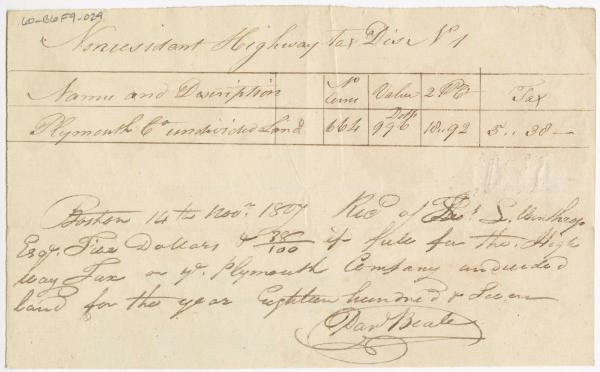 60-B6F9-029
Nonresidant Highway Tax Dis No 1
Names and Discription No acres Value 2 P Ct Tax
Plymouth Co undivided Land 664 Dolls 996 18..92 5..38—
Boston 14th Novr 1807 Recd of Thos L. Winthrop
Esqr. Five Dollars & 38/100 in full for the High
way Tax on ye. Plymouth Company undivided
land for the year Eighteen hundred & Seven
Danl Beale